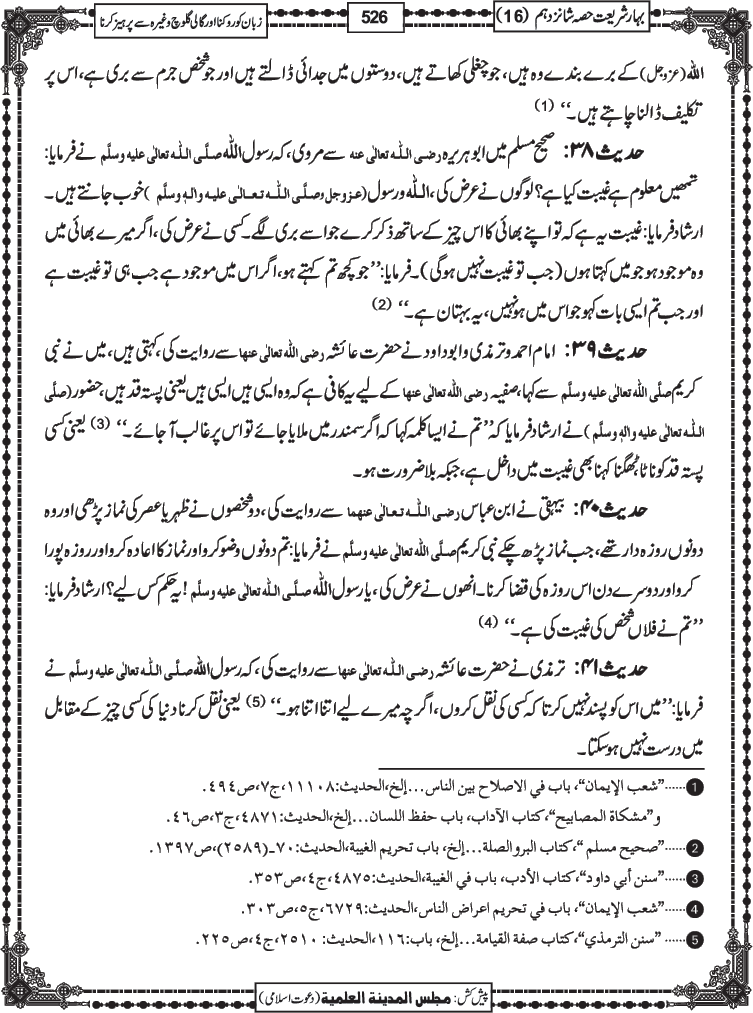 بہارِ شریعت حصہ شانزدہم (16)
526
زبان کو روکنا اور گالی گلوچ وغیرہ سے پرہیز کرنا
اللہ (عزوجل) کے برے بندے وہ ہیں، جو چغلی کھاتے ہیں، دوستوں میں جدائی ڈالتے ہیں اور جو شخص جرم سے بری ہے، اس پر
تکلیف ڈالنا چاہتے ہیں۔‘‘ (1)
حدیث ۳۸: صحیح مسلم میں ابوہریرہ رضی اللہ تعالٰی عنہ سے مروی، کہ رسول اللہ صلَّی اللہ تعالٰی علیہ وسلَّم نے فرمایا:
تمھیں معلوم ہے غیبت کیا ہے؟ لوگوں نے عرض کی، اللہ و رسول (عزوجل وصلَّی اللہ تعالٰی علیہ واٰلہٖ وسلَّم) خوب جانتے ہیں۔
ارشاد فرمایا: غیبت یہ ہے کہ تو اپنے بھائی کا اس چیز کے ساتھ ذکر کرے جو اسے بری لگے۔ کسی نے عرض کی، اگر میرے بھائی میں
وہ موجود ہو جو میں کہتا ہوں (جب تو غیبت نہیں ہوگی)۔ فرمایا: ’’جو کچھ تم کہتے ہو، اگر اس میں موجود ہے جب ہی تو غیبت ہے
اور جب تم ایسی بات کہو جو اس میں ہو نہیں، یہ بہتان ہے۔‘‘ (2)
حدیث ۳۹: امام احمد و ترمذی و ابوداود نے حضرت عائشہ رضی اللہ تعالٰی عنہا سے روایت کی، کہتی ہیں، میں نے نبی
کریم صلَّی اللہ تعالٰی علیہ وسلَّم سے کہا، صفیہ رضی اللہ تعالٰی عنہا کے لیے یہ کافی ہے کہ وہ ایسی ہیں ایسی ہیں یعنی پستہ قد ہیں، حضور (صلَّی
اللہ تعالٰی علیہ واٰلہٖ وسلَّم) نے ارشاد فرمایا کہ ’’تم نے ایسا کلمہ کہا کہ اگر سمندر میں ملایا جائے تو اس پر غالب آجائے۔‘‘ (3) یعنی کسی
پستہ قد کو ناٹا، ٹھگنا کہنا بھی غیبت میں داخل ہے، جبکہ بلا ضرورت ہو۔
حدیث ۴۰: بیہقی نے ابن عباس رضی اللہ تعالٰی عنہما سے روایت کی، دو شخصوں نے ظہر یا عصر کی نماز پڑھی اور وہ
دونوں روزہ دار تھے، جب نماز پڑھ چکے نبی کریم صلَّی اللہ تعالٰی علیہ وسلَّم نے فرمایا: تم دونوں وضو کرو اور نماز کا اعادہ کرو اور روزہ پورا
کرو اور دوسرے دن اس روزہ کی قضا کرنا۔ انھوں نے عرض کی، یارسول اللہ صلَّی اللہ تعالٰی علیہ وسلَّم! یہ حکم کس لیے؟ ارشاد فرمایا:
’’تم نے فلاں شخص کی غیبت کی ہے۔‘‘ (4)
حدیث ۴۱: ترمذی نے حضرت عائشہ رضی اللہ تعالٰی عنہا سے روایت کی، کہ رسول اللہ صلَّی اللہ تعالٰی علیہ وسلَّم نے
فرمایا: ’’میں اس کو پسند نہیں کرتا کہ کسی کی نقل کروں، اگرچہ میرے لیے اتنا اتنا ہو۔‘‘ (5) یعنی نقل کرنا دنیا کی کسی چیز کے مقابل
میں درست نہیں ہوسکتا۔
1 ......”شعب الإيمان“، باب في الاصلاح بين الناس...إلخ،الحديث:١١١٠٨،ج٧،ص٤٩٤.
و”مشكاة المصابيح“، كتاب الآداب، باب حفظ اللسان...إلخ،الحديث:٤٨٧١،ج٣،ص٤٦.
2 ......”صحيح مسلم“، كتاب البر والصلة...إلخ، باب تحريم الغيبة،الحديث:٧٠ـ(٢٥٨٩)،ص١٣٩٧.
3 ......”سنن أبي داود“، كتاب الأدب، باب في الغيبة،الحديث:٤٨٧٥،ج٤،ص٣٥٣.
4 ......”شعب الإيمان“، باب في تحريم اعراض الناس،الحديث:٦٧٢٩،ج٥،ص٣٠٣.
5 ......”سنن الترمذي“، كتاب صفة القيامة...إلخ، باب:١١٦،الحديث: ٢٥١٠،ج٤،ص٢٢٥.
پیش کش: مجلس المدينة العلمية (دعوتِ اسلامی)